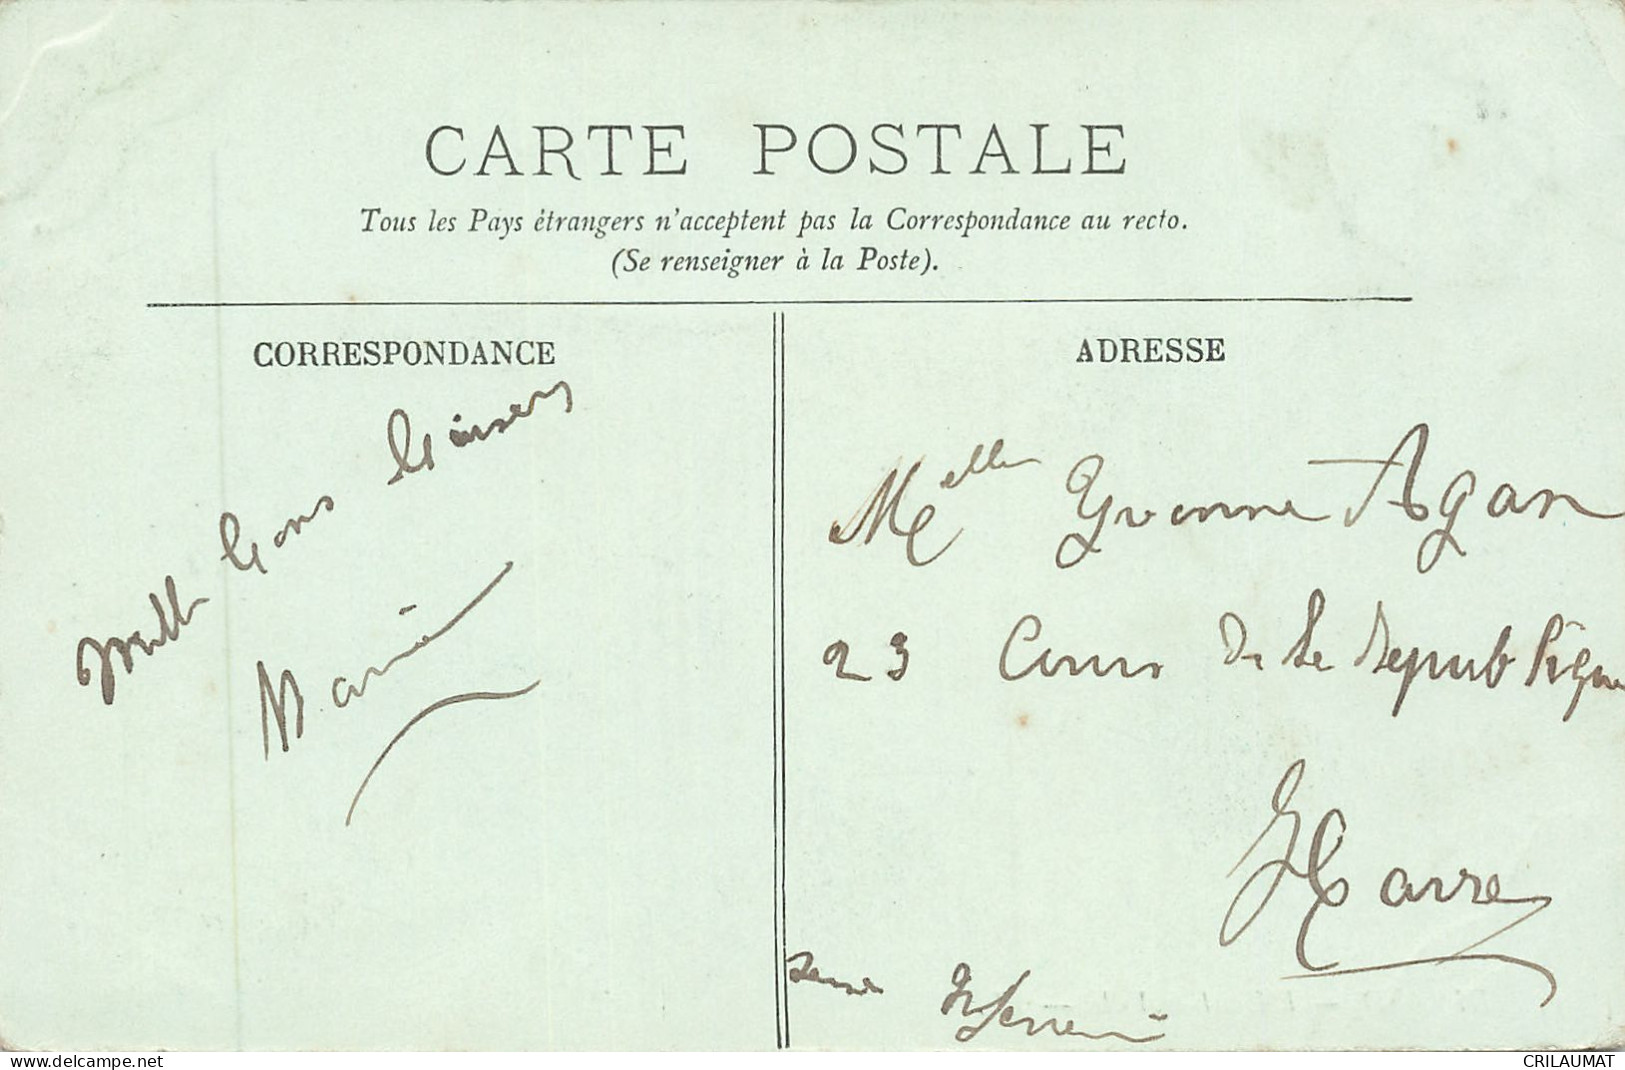 CARTE POSTALE
Tous les Pays étrangers n'acceptent pas la Correspondance au recto.
(Se renseigner à la Poste).
CORRESPONDANCE
ADRESSE
Mille bons baisers
Maria
Melle Yvonne Agan
23 Cours de la Republique
Havre
Seine Inferieure
CRILAUMAT